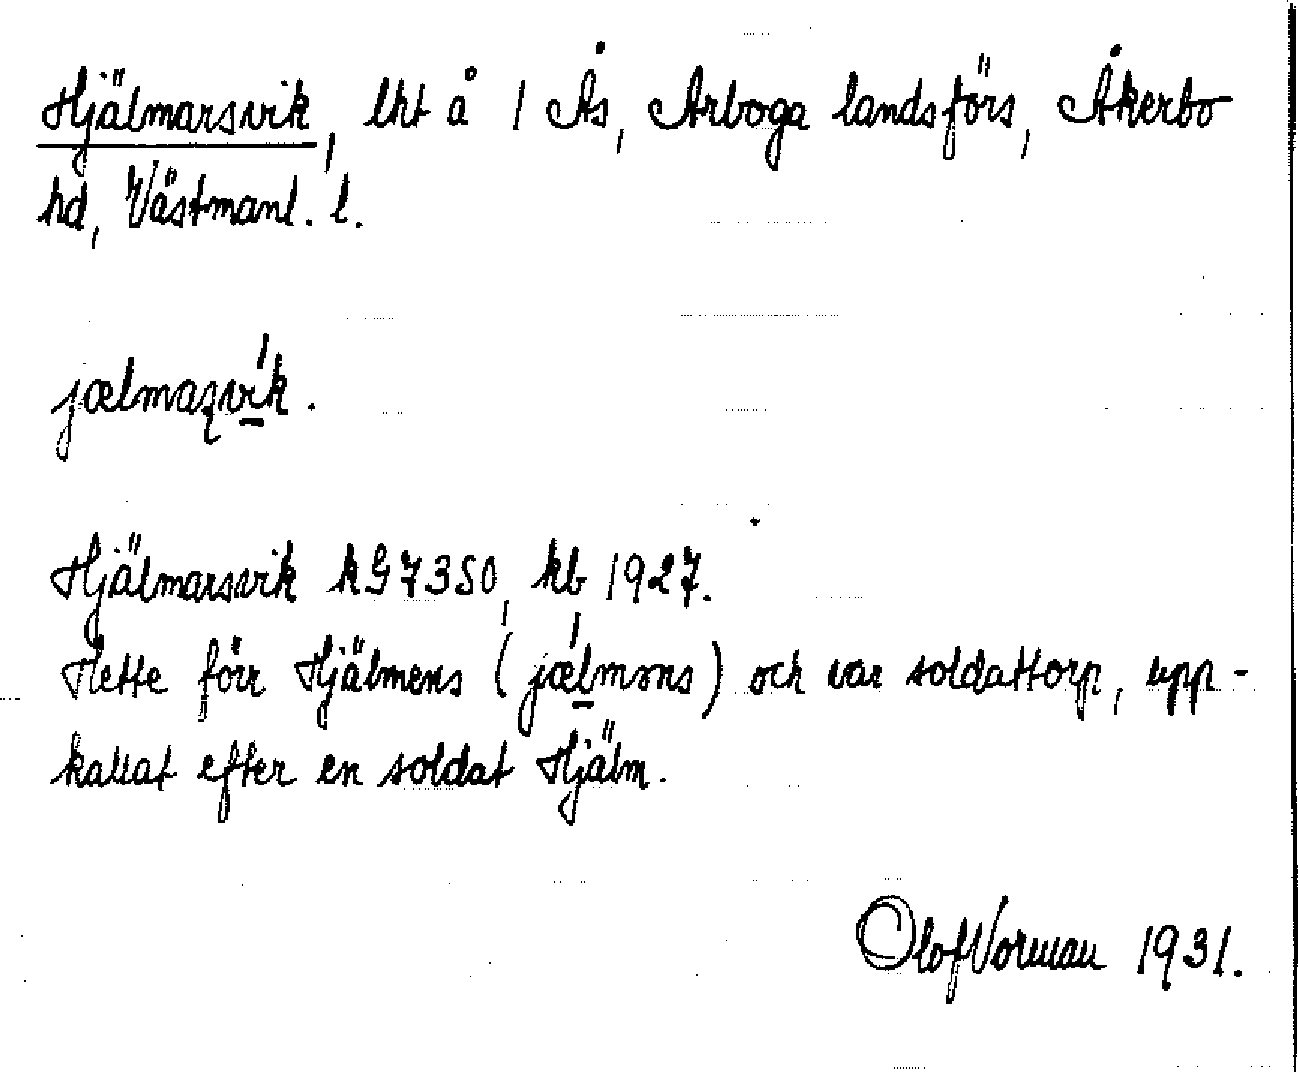 Hjälmarsvik, lht å 1 Ås, Arboga landsförs, Åkerbo
hd, Västmanl. l.
jælmaʂvík.
Hjälmarsvik kG7350, kb 1927.
Hette förr Hjälmens (jǽlməns) och var soldattorp, upp-
kallat efter en soldat Hjälm.
Olof Vorman 1931.